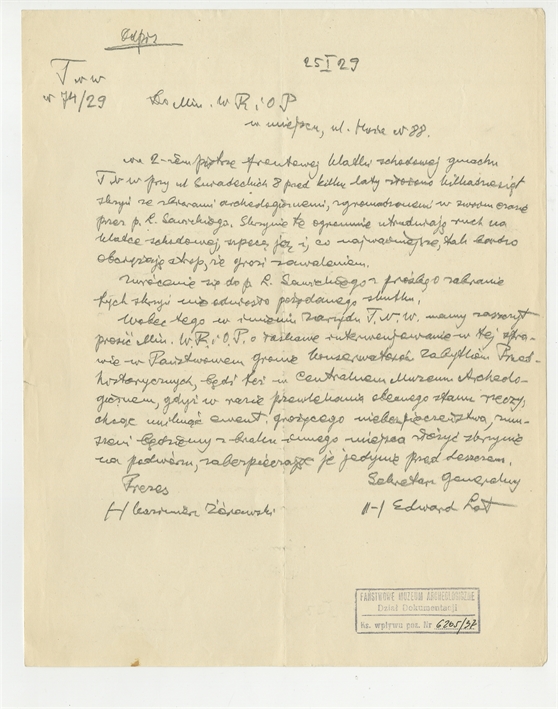 Odpis
25 I 29
T n W
N 74/29
Do Min. W R i O P
w miejscu, ul. Hoża N 88.
na 2-iem piętrze frontowej klatki schodowej gmachu
T n W przy ul Śniadeckich 8 przed kilku laty złożono kilkadziesiąt
skrzyń ze zbiorami archeologicznemi, zgromadzonemi w swoim czasie
przez p. L. Sawickiego. Skrzynie te ogromnie utrudniają ruch na
klatce schodowej, szpecą ją i, co najważniejsze, tak bardzo
obciążają strop, że grozi zawaleniem.
Zwrócenie się do p. L. Sawickiego z prośbą o zabranie
tych skrzyń nie odniosło pożądanego skutku.
Wobec tego w imieniu Zarządu T. N. W. mamy zaszczyt
prosić Min. W. R. i O. P. o łaskawe interwenjowanie w tej spra-
wie w Państwowem gronie konserwatorów Zabytków Przed-
historycznych, bądź też w Centralnem Muzeum Archeolo-
gicznem, gdyż w razie przewlekania obecnego stanu rzeczy,
chcąc uniknąć ewent. grożącego niebezpieczeństwa, zmu-
szeni będziemy z braku innego miejsca złożyć skrzynie
na podwórzu, zabezpieczając je jedynie przed deszczem.
Prezes
Sekretarz Generalny
(-) Kazimierz Żórawski
(-) Edward Łoth
PAŃSTWOWE MUZEUM ARCHEOLOGICZNE
Dział Dokumentacji
Ks. wpływu poz. Nr 6205/37